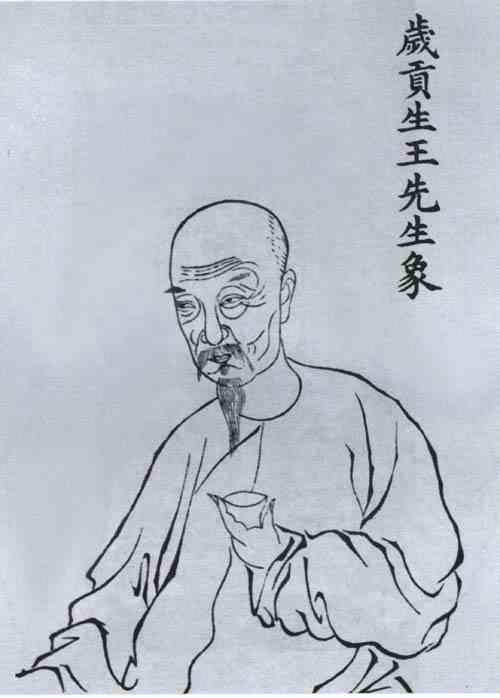 歲貢生王先生象